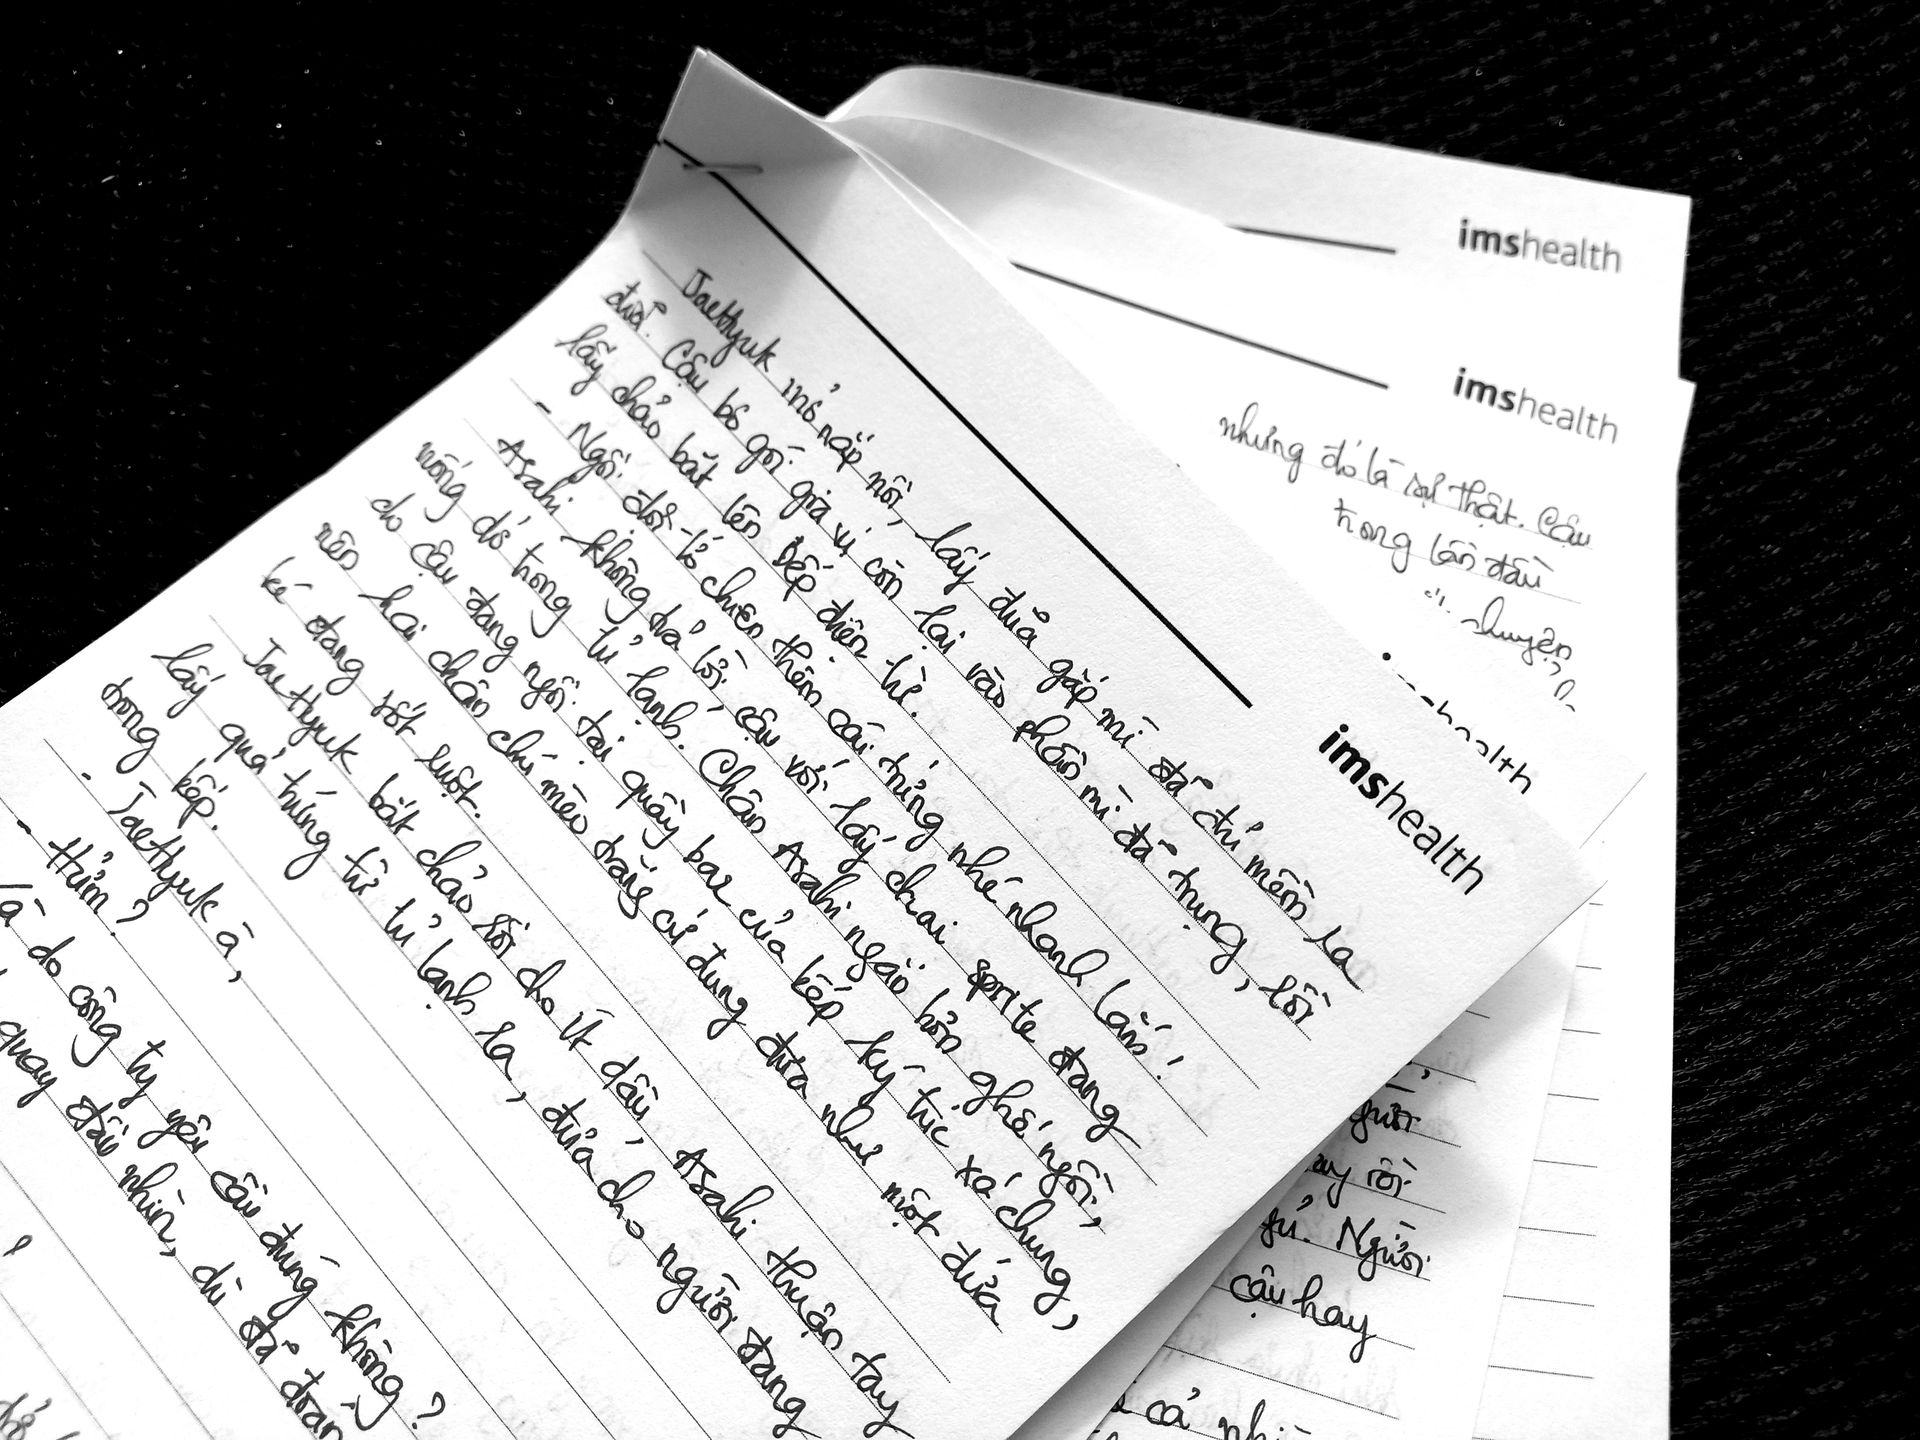 imshealth
imshealth
nhưng đó là sự thật. Cậu
trong lần đầu
chuyện
health
imshealth
Jaehyuk mở nắp nồi, lấy đũa gắp mì đã đủ mềm ra
đĩa. Cậu bỏ gói gia vị còn lại vào phần mì đã trụng, rồi
lấy chảo bắt lên bếp điện từ.
- Ngồi đợi tớ chiên thêm cái trứng nhé nhanh lắm!
Asahi không trả lời, cậu với lấy chai sprite đang
nóng đó trong tủ lạnh. Chân Asahi ngắn hơn ghế ngồi,
do cậu đang ngồi tại quầy bar của bếp ký túc xá chung,
nên hai chân chú mèo trắng cứ đung đưa như một đứa
bé đang sốt ruột.
Jaehyuk bắt chảo rồi cho ít dầu, Asahi thuận tay
lấy quả trứng từ tủ lạnh ra, đưa cho người đang
trong bếp.
- Jaehyuk à,
- Hửm?
là do công ty yêu cầu đúng không?
quay đầu nhìn, dù đã đoán
người
ay rồi
gũi. Người
cậu hay
cả